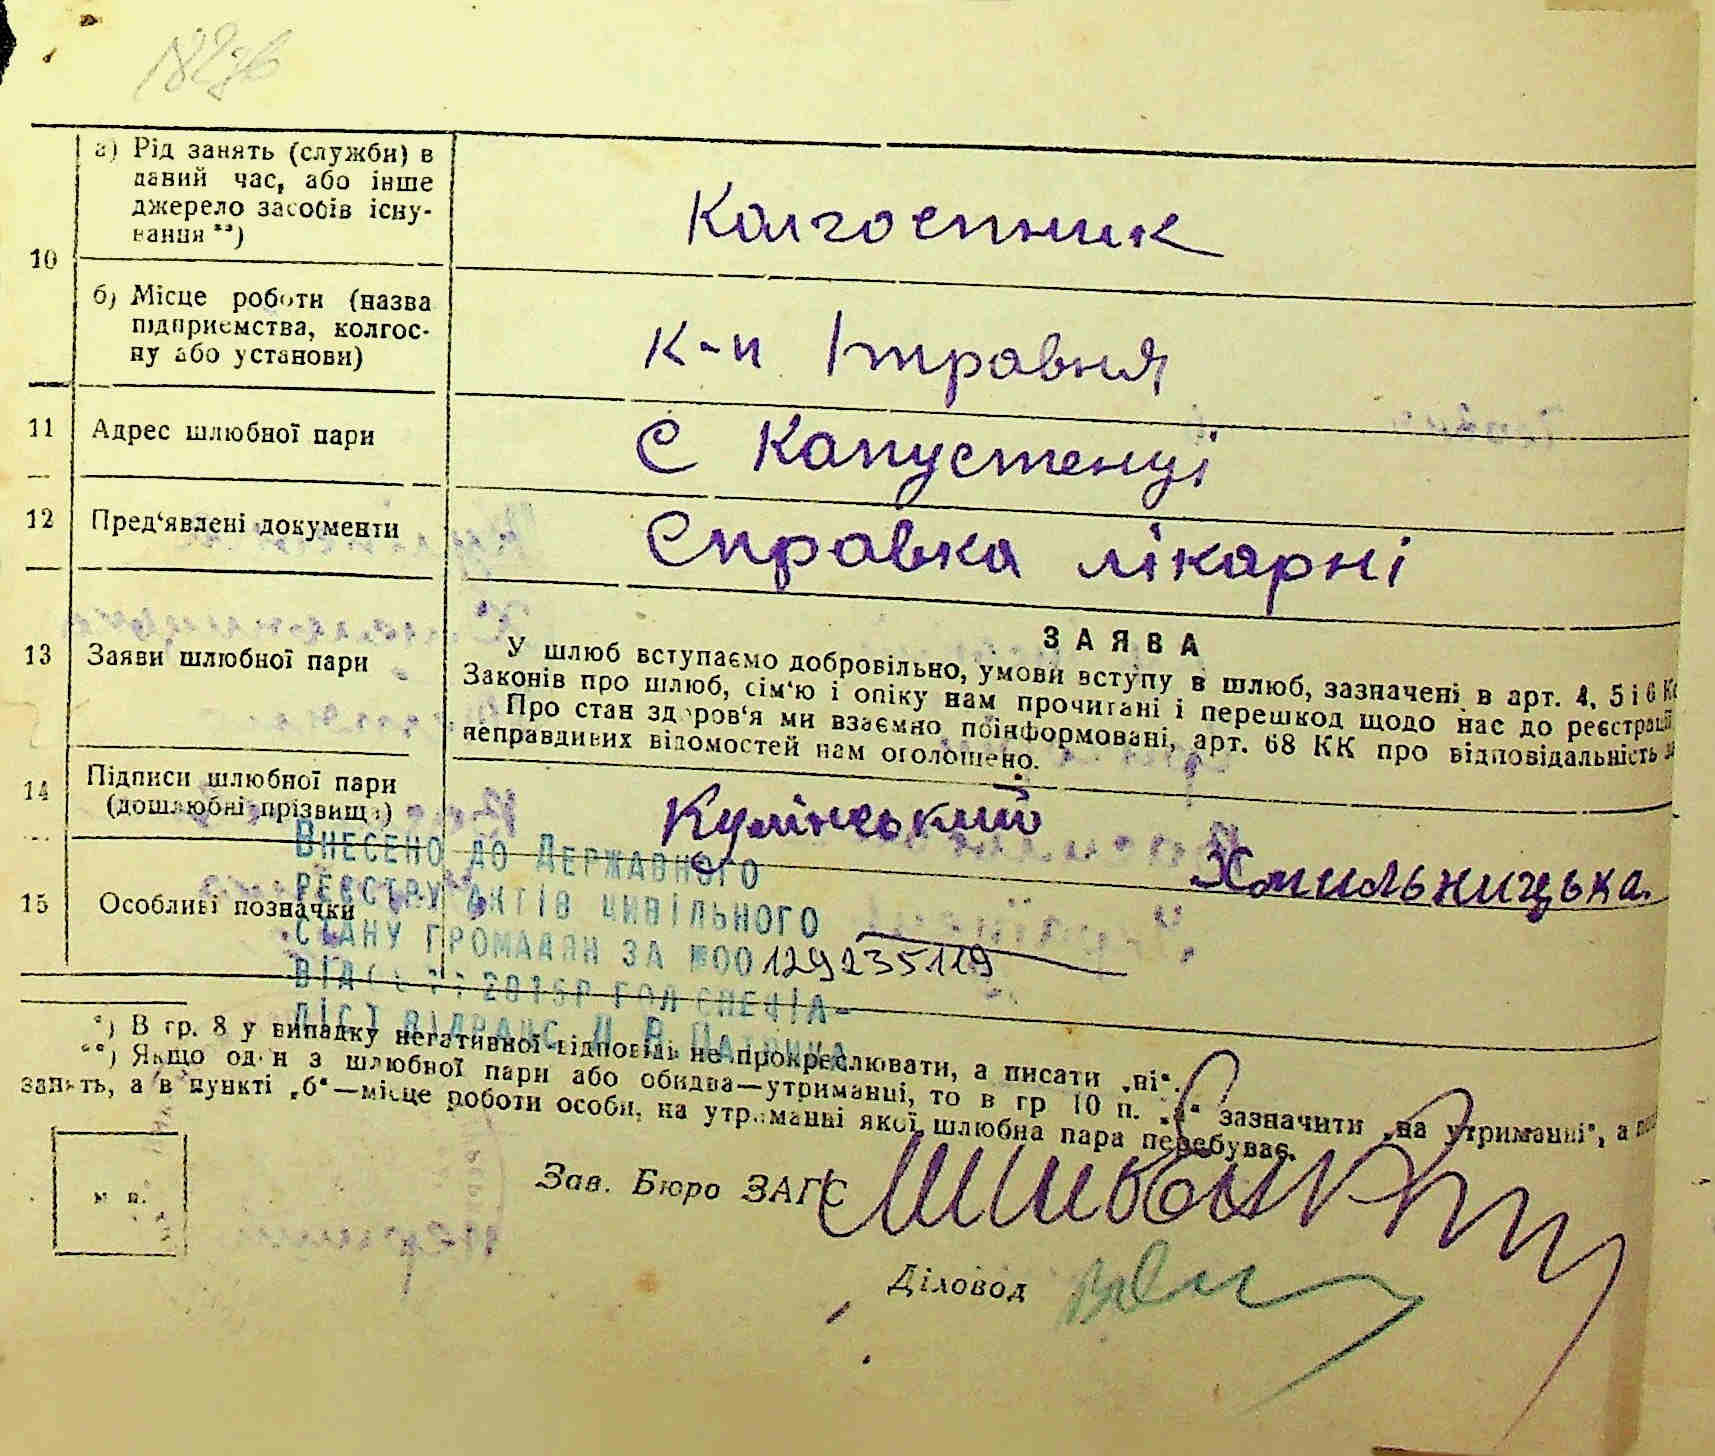 а) Рід занять (служби) в
даний час, або інше
джерело засобів існу-
вання **)
Колгоспник
10
б) Місце роботи (назва
підприємства, колгос-
пу або установи)
к-п 1 травня
11 Адрес шлюбної пари
С Капустенці
12 Пред'явлені документи
Справка лікарні
ЗАЯВА
13 Заяви шлюбної пари
У шлюб вступаємо добровільно, умови вступу в шлюб, зазначені в арт. 4, 5 і 6
Законів про шлюб, сім'ю і опіку нам прочитані і перешкод щодо нас до реєстрації
Про стан здоров'я ми взаємно поінформовані, арт. 68 КК про відповідальність
неправдивих відомостей нам оголошено.
14 Підписи шлюбної пари
(дошлюбні прізвища)
Кулінський
Хмильницька
15 Особливі позначки
Внесено до Державного
реєстру актів цивільного
стану громадян за №00129235119
*) В гр. 8 у випадку негативної відповіді не прокреслювати, а писати „ні“.
**) Якщо один з шлюбної пари або обидва—утриманці, то в гр 10 п. „а“ зазначити „на утриманні“, а
занять, а в пункті „б“—місце роботи особи, на утриманні якої шлюбна пара перебуває.
м п.
Зав. Бюро ЗАГС
Діловод